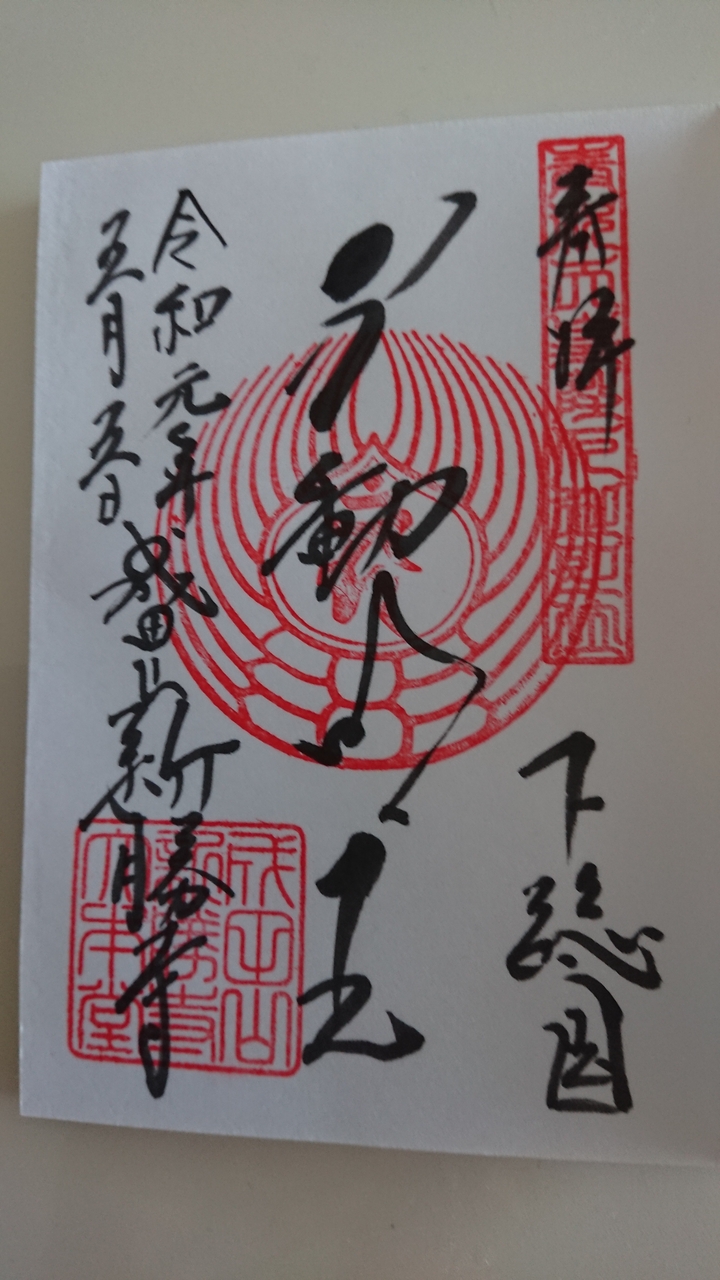 奉拝
下総国
不動明王
令和元年
五月五日
成田山新勝寺
成田山
新勝寺
大本堂